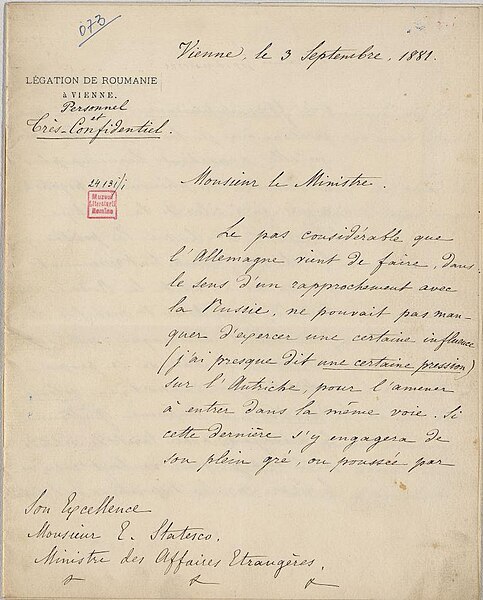 073
Vienne, le 3 Septembre, 1881.
LÉGATION DE ROUMANIE
à VIENNE.
Personnel
et
Très-Confidentiel.
24131/1
Muzeul
Literaturii
Române
Monsieur le Ministre.
Le pas considérable que
l'Allemagne vient de faire, dans
le sens d'un rapprochement avec
la Russie, ne pouvait pas man-
quer d'exercer une certaine influence
(j'ai presque dit une certaine pression)
sur l'Autriche, pour l'amener
à entrer dans la même voie. Si
cette dernière s'y engagera de
son plein gré, ou poussée par
Son Excellence
Monsieur E. Statesco.
Ministre des Affaires Etrangères.